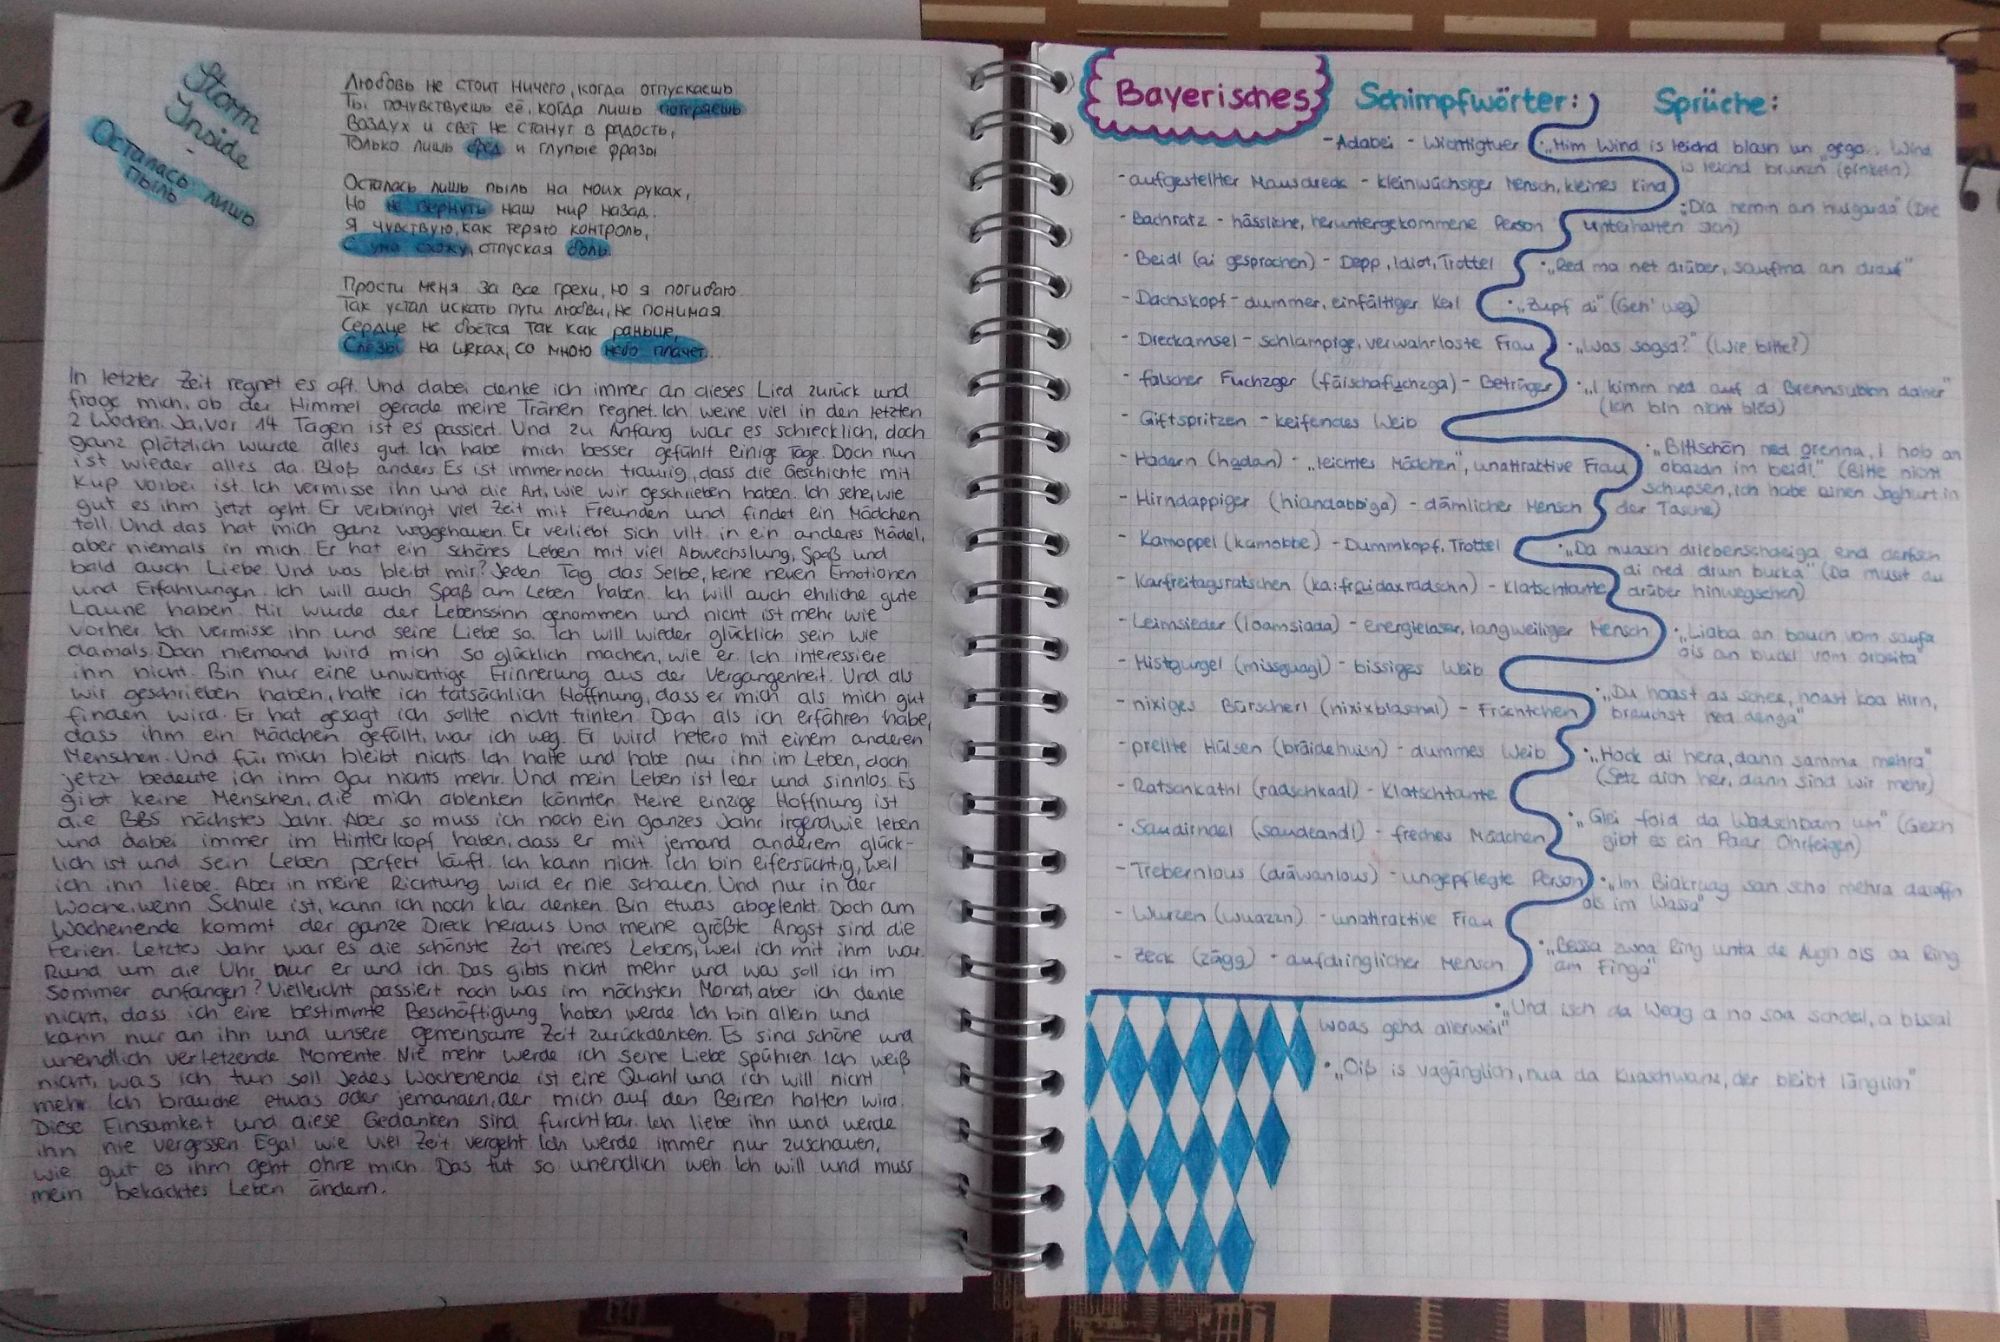 Storm
Inside
-
Осталась лишь
пыль
Любовь не стоит ничего, когда отпускаешь
Ты почувствуешь её, когда лишь потеряешь
Воздух и свет не станут в радость,
Только лишь бред и глупые фразы
Осталась лишь пыль на моих руках,
Но не вернуть наш мир назад.
Я чувствую, как теряю контроль,
С ума схожу, отпуская боль.
Прости меня за все грехи, но я погибаю
Так устал искать пути любви, не понимая.
Сердце не бьётся так как раньше,
Слёзы на щеках, со мною небо плачет.
In letzter Zeit regnet es oft. Und dabei denke ich immer an dieses Lied zurück und
frage mich, ob der Himmel gerade meine Tränen regnet. Ich weine viel in den letzten
2 Wochen. Ja, vor 14 Tagen ist es passiert. Und zu Anfang war es schrecklich, doch
ganz plötzlich wurde alles gut. Ich habe mich besser gefühlt einige Tage. Doch nun
ist wieder alles da. Bloß anders. Es ist immernoch traurig, dass die Geschichte mit
Kup vorbei ist. Ich vermisse ihn und die Art, wie wir geschrieben haben. Ich sehe, wie
gut es ihm jetzt geht. Er verbringt viel Zeit mit Freunden und findet ein Mädchen
toll. Und das hat mich ganz weggehauen. Er verliebt sich vllt. in ein anderes Mädel,
aber niemals in mich. Er hat ein schönes Leben mit viel Abwechslung, Spaß und
bald auch Liebe. Und was bleibt mir? Jeden Tag das Selbe, keine neuen Emotionen
und Erfahrungen. Ich will auch Spaß am Leben haben. Ich will auch ehrliche gute
Laune haben. Mir wurde der Lebenssinn genommen und nicht ist mehr wie
vorher. Ich vermisse ihn und seine Liebe so. Ich will wieder glücklich sein wie
damals. Doch niemand wird mich so glücklich machen, wie er. Ich interessiere
ihn nicht. Bin nur eine unwichtige Erinnerung aus der Vergangenheit. Und als
wir geschrieben haben, hatte ich tatsächlich Hoffnung, dass er mich als mich gut
finden wird. Er hat gesagt ich sollte nicht trinken. Doch als ich erfahren habe,
dass ihm ein Mädchen gefällt, war ich weg. Er wird hetero mit einem anderen
Menschen. Und für mich bleibt nichts. Ich hatte und habe nur ihn im Leben, doch
jetzt bedeute ich ihm gar nichts mehr. Und mein Leben ist leer und sinnlos. Es
gibt keine Menschen, die mich ablenken könnten. Meine einzige Hoffnung ist
die BBS nächstes Jahr. Aber so muss ich noch ein ganzes Jahr irgendwie leben
und dabei immer im Hinterkopf haben, dass er mit jemand anderem glück-
lich ist und sein Leben perfekt läuft. Ich kann nicht. Ich bin eifersüchtig, weil
ich ihn liebe. Aber in meine Richtung wird er nie schauen. Und nur in der
Woche, wenn Schule ist, kann ich noch klar denken. Bin etwas abgelenkt. Doch am
Wochenende kommt der ganze Dreck heraus. Und meine größte Angst sind die
Ferien. Letztes Jahr war es die schönste Zeit meines Lebens, weil ich mit ihm war.
Rund um die Uhr, nur er und ich. Das gibts nicht mehr und was soll ich im
Sommer anfangen? Vielleicht passiert noch was im nächsten Monat, aber ich denke
nicht, dass ich eine bestimmte Beschäftigung haben werde. Ich bin allein und
kann nur an ihn und unsere gemeinsame Zeit zurückdenken. Es sind schöne und
unendlich verletzende Momente. Nie mehr werde ich seine Liebe spühren. Ich weiß
nicht, was ich tun soll. Jedes Wochenende ist eine Quahl und ich will nicht
mehr. Ich brauche etwas oder jemanden, der mich auf den Beinen halten wird.
Diese Einsamkeit und diese Gedanken sind furchtbar. Ich liebe ihn und werde
ihn nie vergessen. Egal wie viel Zeit vergeht. Ich werde immer nur zuschauen,
wie gut es ihm geht ohne mich. Das tut so unendlich weh. Ich will und muss
mein bekacktes Leben ändern.
Bayerisches Schimpfwörter:
- Adabei - Wichtigtuer
- aufgestellter Mausdreck - kleinwüchsiger Mensch, kleines Kind
- Bachratz - hässliche, heruntergekommene Person
- Beidl (ai gesprochen) - Depp, Idiot, Trottel
- Dachskopf - dummer, einfältiger Kerl
- Dreckamsel - schlampige, verwahrloste Frau
- falscher Fuchzger (fäischafuchzga) - Betrüger
- Giftspritzen - keifendes Weib
- Hadern (hadan) - „leichtes Mädchen", unattraktive Frau
- Hirndappiger (hiandabbiga) - dämlicher Mensch
- Kamoppel (kamobbe) - Dummkopf, Trottel
- Karfreitagsratschen (kaifraidaxradschn) - Klatschtante
- Leimsieder (loamsiada) - energieloser, langweiliger Mensch
- Mistgurgel (missguagl) - bissiges Weib
- nixiges Bürscherl (nixixblaschal) - Früchtchen
- prellte Hülsen (bräidehuisn) - dummes Weib
- Ratschkathl (radschkadl) - Klatschtante
- Saudirndel (saudeandl) - freches Mädchen
- Trebernlous (dräwanlous) - ungepflegte Person
- Wurzen (wuazzn) - unattraktive Frau
- Zeck (zägg) - aufdringlicher Mensch
Sprüche:
• „Mim Wind is leichd blasn un gega Wind
is leichd brunzn" (pinkeln)
• „Dia hemm an husgarda" (Die
unterhalten sich)
• „Red ma net drüber, saufma an drauf"
• „Zupf di" (Geh' weg)
• „Was sogsd?" (Wie bitte?)
• „I kimm ned auf d Brennsubbn daher"
(Ich bin nicht blöd)
• „Bittschön ned drenna, I hob an
obazdn im beidl." (Bitte nicht
schupsen, ich habe einen Joghurt in
der Tasche)
• „Da muasch drieberschdeiga, end derfsch
di ned drum bucka" (Da musst du
drüber hinwegsehen)
• „Liaba an bauch vom saufa
ois an buckl vom arbeita"
• „Du hoast as schee, hoast koa Hirn,
brauchst ned denga"
• „Hock di hera, dann samma mehra"
(Setz dich her, dann sind wir mehr)
• „Glei foid da Wadschbam um" (Gleich
gibt es ein Paar Ohrfeigen)
• „Im Biakruag san scho mehra dasoffn
ois im Wassa"
• „Bessa zwoa Ring unta de Augn ois oa Ring
am Finga"
• „Und isch da Weag a no soa schdeil, a bissal
woas gehd allerweil"
• „Oiß is vagänglich, nua da Kuaschwanz, der bleibt länglich"